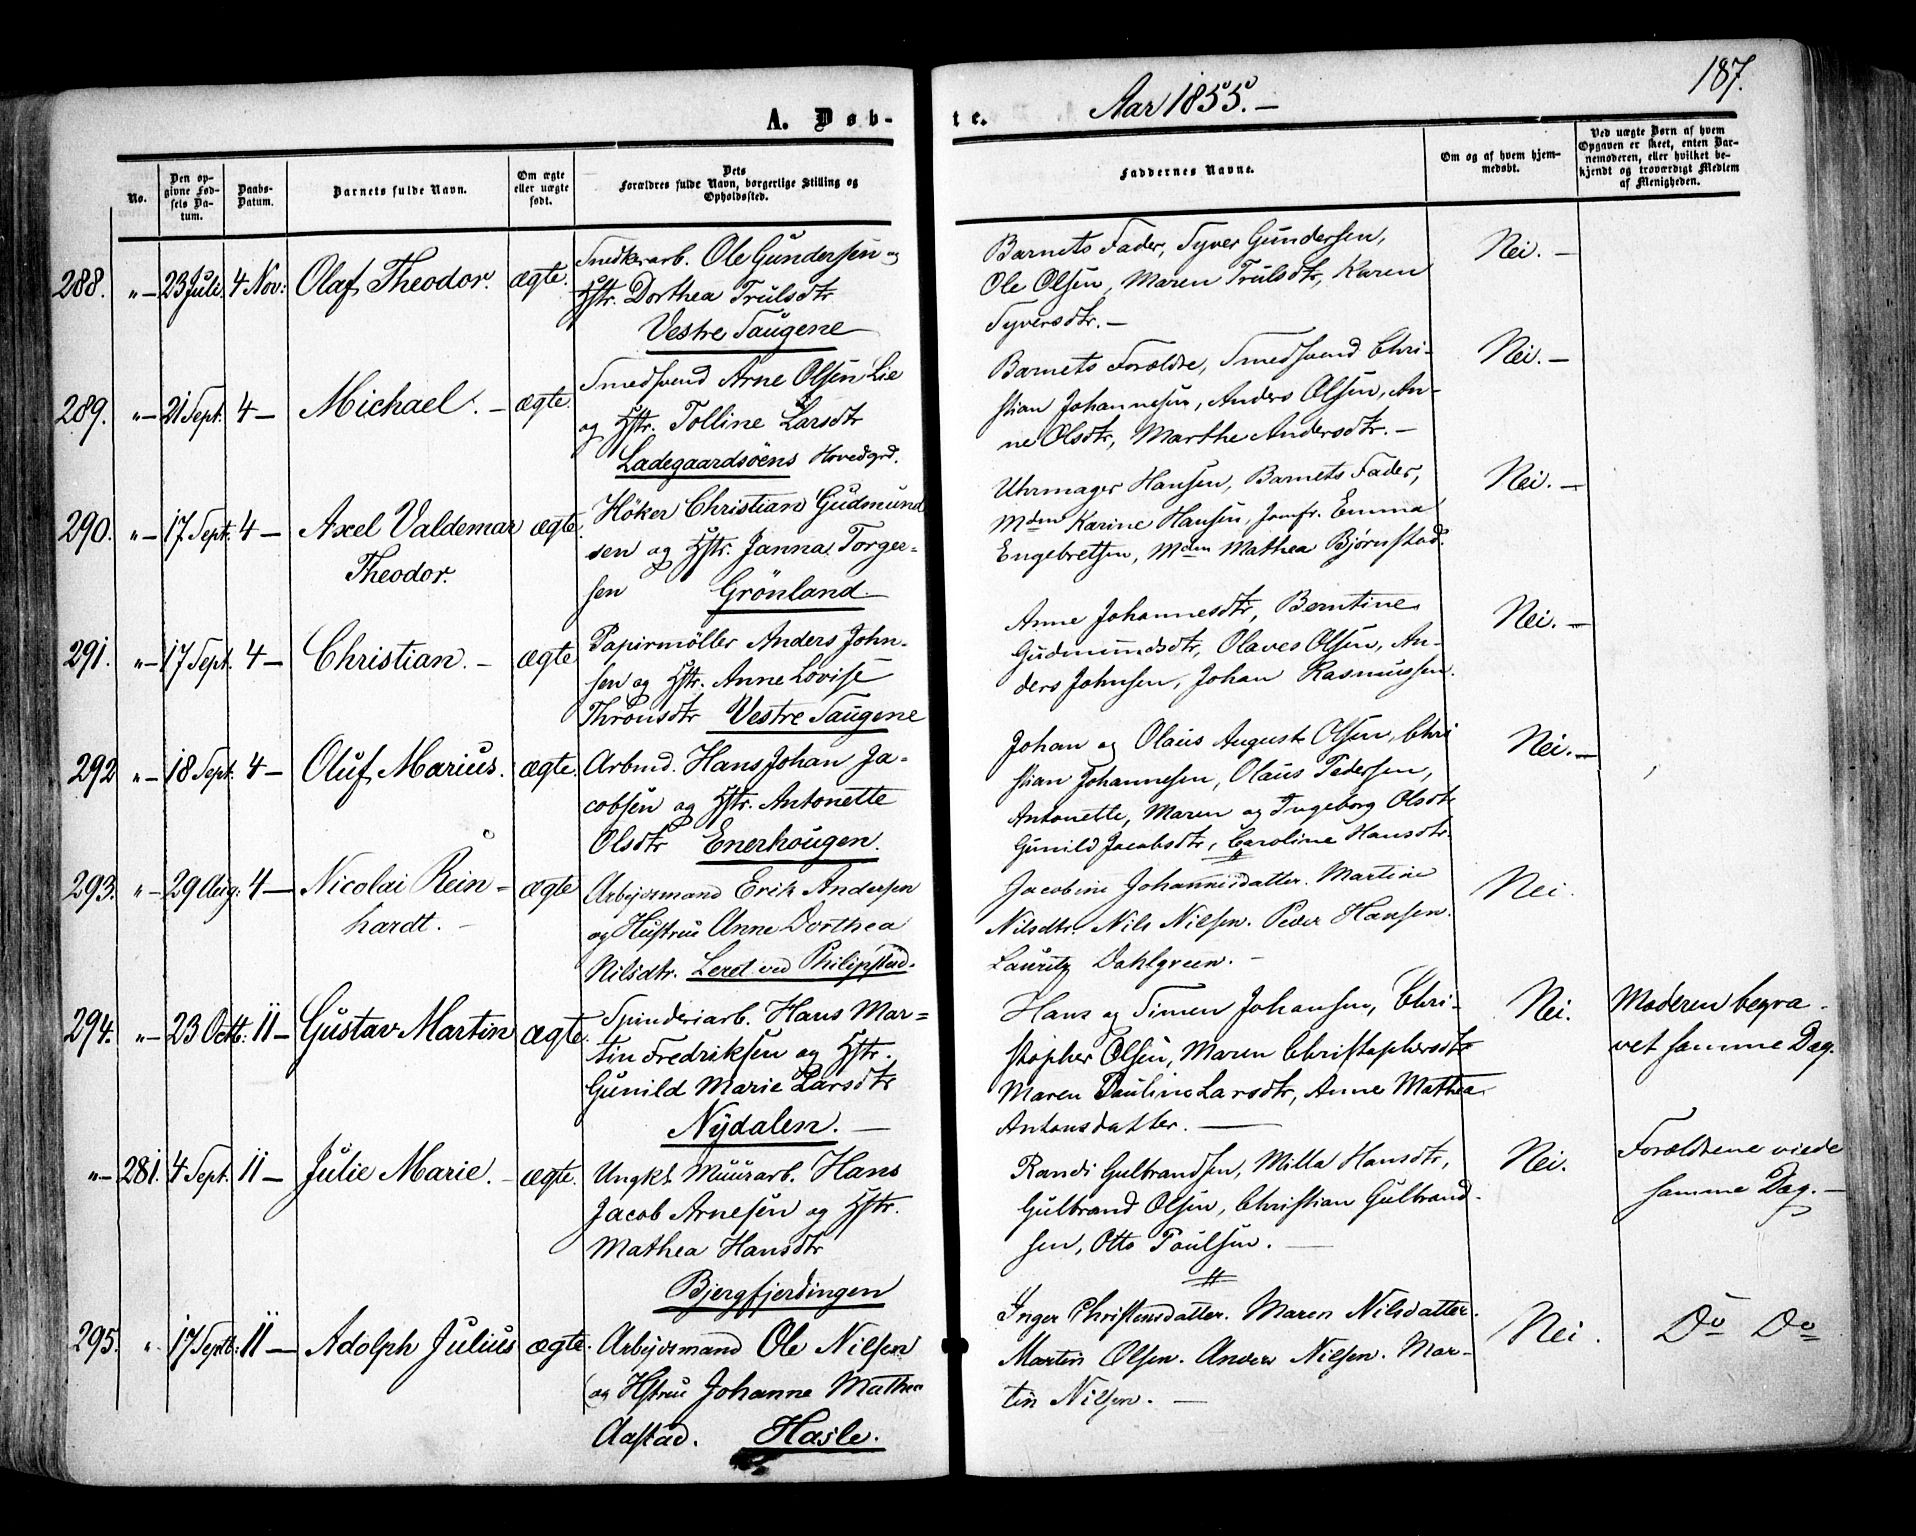 187.
Aar 1855. –
A. Døb-
te.
No.
Den op-
givne Fød-
sels Da-
tum.
Daabs-
Datum.
Barnets fulde Navn.
Om ægte
eller uægte
født.
Dets
Forældres fulde Navn, borgerlige Stilling og
Opholdssted.
Faddernes Navne.
Om og af hvem hjem-
medøbt.
Ved uægte Børn af hvem
Opgaven er skeet, enten Bar-
nemoderen, eller hvilket be-
kjendt og troværdigt Medlem
af Menigheden.
288. „– 23 Juli. 4 Nov: Olaf Theodor. ægte.
Snedkerarb. Ole Gundersen og
Hstr. Dorthea Trulsdtr
Vestre Saugene
Barnets Fader, Syver Gundersen,
Ole Olsen, Maren Trulsdtr, Karen
Syversdtr. –
Nei. –
289. „– 21 Sept. 4 – Michael. – ægte.
Smedsvend Arne Olsen Lie
og Hstr. Tolline Larsdtr
Ladegaardsöens Hovedgrd.
Barnets Forældre, Smedsvend Chri-
stian Johannesen, Anders Olsen, An-
ne Olsdtr, Marthe Andersdtr. –
Nei. –
290. „– 17 Sept. 4 – Axel Valdemar
Theodor.
ægte.
Höker Christian Gudmund
sen og Hstr. Janna Torger-
sen Grönland
Uhrmager Hansen, Barnets Fader,
Mdm Karine Hansen, Jomfr. Emma
Engebretsen, Mdm Mathea Bjørnstad.
Nei. –
291. „– 17 Sept. 4 – Christian. – ægte
Papirmöller Anders John-
sen og Hstr. Anne Lovise
Thronsdtr Vestre Saugene
Anne Johannesdtr, Berntine
Gudmundsdtr, Olaves Olsen, An-
ders Johnsen, Johan Rasmussen.
Nei. –
292 „– 18 Sept. 4 – Oluf Marius. ægte.
Arbmd. Hans Johan Ja-
cobsen og Hstr. Antonette
Olsdtr Enerhougen.
Johan og Olaus August Olsen, Chri
stian Johannesen, Olaus Pedersen,
Antonette, Maren og Ingeborg Olsdtr
Gunild Jacobsdtr, Caroline Hansdtr.
Nei. –
293. „– 29 Aug: 4 – Nicolai Rein-
hardt. –
ægte
Arbejdsmand Erik Andersen
og Hustrue Anne Dorthea
Nilsdtr. Leret ved Philipstad.
Jacobine Johannisdatter. Martine
Nilsdtr. Nils Nilsen. Peder Hansen.
Lauritz Dahlgreen. –
Nei.
294. „– 23 Octb: 11 – Gustav Martin ægte.
Spinderiarb. Hans Mar-
tin Fredriksen og Hstr.
Gunild Marie Larsdtr
Nydalen. –
Hans og Simen Johansen, Chri-
stopher Olsen, Maren Christophersdtr
Maren Pauline Larsdtr, Anne Mathea
Antonsdatter. –
Nei.
Moderen begra-
vet samme Dag.
„– 281. 4 Sept. 11 – Julie Marie. – ægte.
Ungkl. Muurarb. Hans
Jacob Arnesen og Hstr.
Mathea Hansdtr
Bjergfjerdingen
Randi Gulbrandsen, Milla Hansdtr,
Gulbrand Olsen, Christian Gulbrand-
sen, Otto Poulsen. –
Nei.
Forældrene viede
samme Dag. –
295. „ 17 Septb: 11 – Adolph Julius ægte.
Arbejdsmand Ole Nilsen
og Hstrue Johanne Mathea
Aastad. Hasle.
Inger Christensdatter. Maren Nilsdatter.
Martin Olsen. Anders Nilsen. Mar-
tin Nilsen. –
Nei.
Do Do